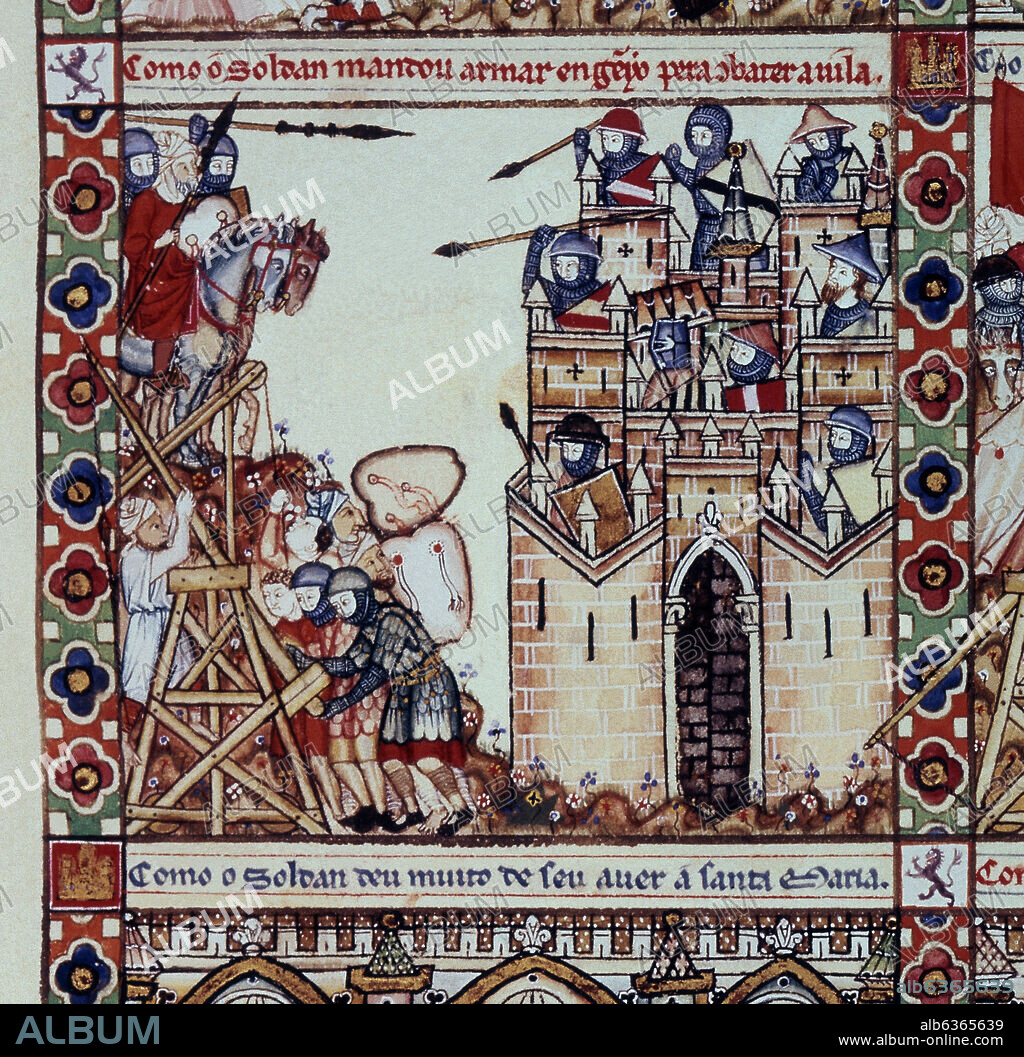 Como õ Soldan mandou armar engẽyo pera cõbater a uila.
Como o Soldan deu muito de seu auer a santa Maria.
ALBUM
alb6365639
ALBUM
alb6365639
www.album-online.com